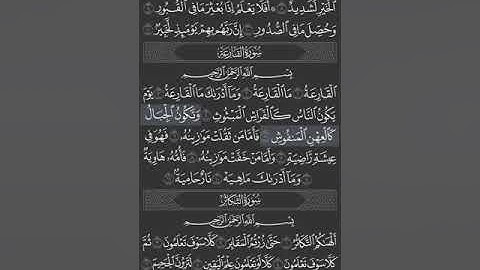 ٱلْخَيْرِ لَشَدِيدٌ ۝ أَفَلَا يَعْلَمُ إِذَا بُعْثِرَ مَا فِي ٱلْقُبُورِ ۝
وَحُصِّلَ مَا فِي ٱلصُّدُورِ ۝ إِنَّ رَبَّهُم بِهِمْ يَوْمَئِذٍ لَّخَبِيرٌۢ ۝
سُورَةُ ٱلْقَارِعَةِ
بِسْمِ ٱللَّهِ ٱلرَّحْمَٰنِ ٱلرَّحِيمِ
ٱلْقَارِعَةُ ۝ مَا ٱلْقَارِعَةُ ۝ وَمَآ أَدْرَىٰكَ مَا ٱلْقَارِعَةُ ۝ يَوْمَ
يَكُونُ ٱلنَّاسُ كَٱلْفَرَاشِ ٱلْمَبْثُوثِ ۝ وَتَكُونُ ٱلْجِبَالُ
كَٱلْعِهْنِ ٱلْمَنفُوشِ ۝ فَأَمَّا مَن ثَقُلَتْ مَوَٰزِينُهُۥ ۝ فَهُوَ فِي
عِيشَةٍ رَّاضِيَةٍ ۝ وَأَمَّا مَنْ خَفَّتْ مَوَٰزِينُهُۥ ۝ فَأُمُّهُۥ هَاوِيَةٌ
۝ وَمَآ أَدْرَىٰكَ مَا هِيَهْ ۝ نَارٌ حَامِيَةٌۢ ۝
سُورَةُ ٱلتَّكَاثُرِ
بِسْمِ ٱللَّهِ ٱلرَّحْمَٰنِ ٱلرَّحِيمِ
أَلْهَىٰكُمُ ٱلتَّكَاثُرُ ۝ حَتَّىٰ زُرْتُمُ ٱلْمَقَابِرَ ۝ كَلَّا سَوْفَ تَعْلَمُونَ ۝ ثُمَّ
كَلَّا سَوْفَ تَعْلَمُونَ ۝ كَلَّا لَوْ تَعْلَمُونَ عِلْمَ ٱلْيَقِينِ ۝ لَتَرَوُنَّ ٱلْجَحِيمَ